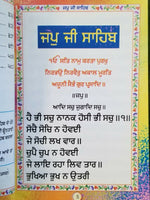 ਜਪੁ ਜੀ ਸਾਹਿਬ
ੴ ਸਤਿ ਨਾਮੁ ਕਰਤਾ ਪੁਰਖੁ
ਨਿਰਭਉ ਨਿਰਵੈਰੁ ਅਕਾਲ ਮੂਰਤਿ
ਅਜੂਨੀ ਸੈਭੰ ਗੁਰ ਪ੍ਰਸਾਦਿ॥
॥ਜਪੁ॥
ਆਦਿ ਸਚੁ ਜੁਗਾਦਿ ਸਚੁ॥
ਹੈ ਭੀ ਸਚੁ ਨਾਨਕ ਹੋਸੀ ਭੀ ਸਚੁ॥੧॥
ਸੋਚੈ ਸੋਚਿ ਨ ਹੋਵਈ
ਜੇ ਸੋਚੀ ਲਖ ਵਾਰ॥
ਚੁਪੈ ਚੁਪ ਨ ਹੋਵਈ
ਜੇ ਲਾਇ ਰਹਾ ਲਿਵ ਤਾਰ॥
ਭੁਖਿਆ ਭੁਖ ਨ ਉਤਰੀ